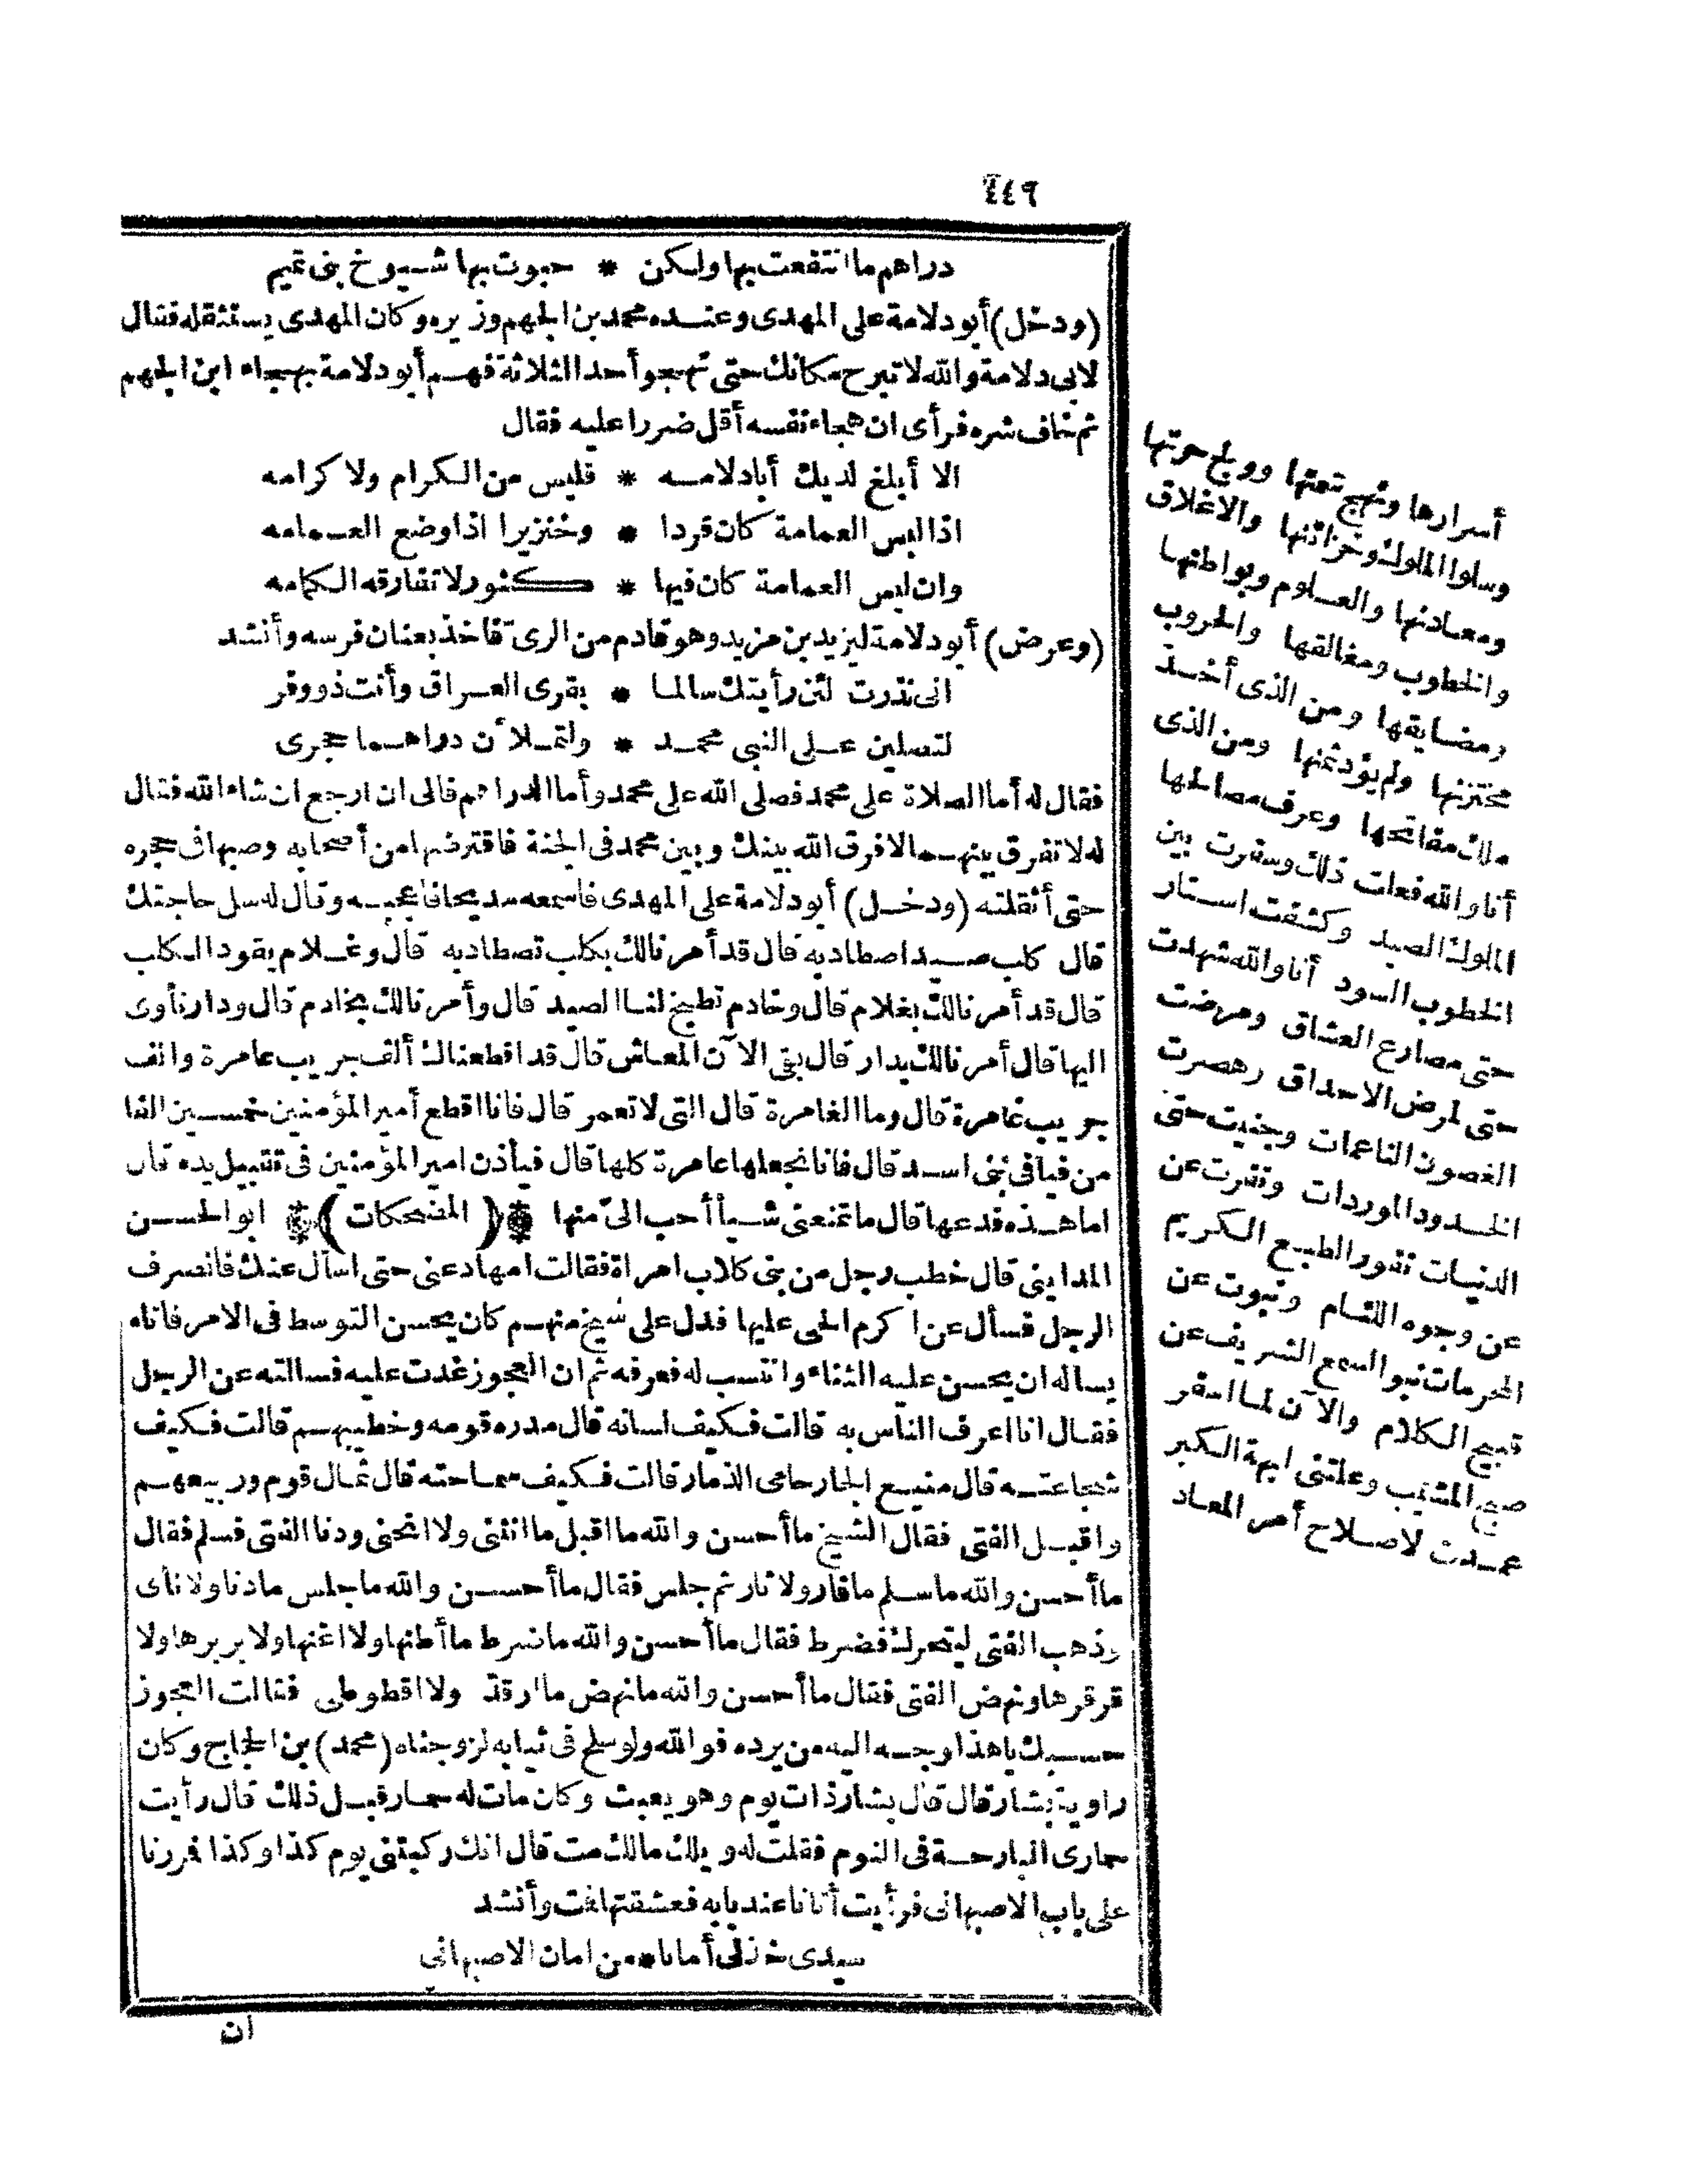 ٤٤٩
دراهم ما انتفعت بها ولكن * حبوت بها شيوخ بنى تميم
(ودخل) أبو دلامة على المهدى وعنده محمد بن الجهم وزيره وكان المهدى يستثقله فقال
لابى دلامة والله لا تبرح مكانك حتى تهجو أحد الثلاثة فهم أبو دلامة بهجاء ابن الجهم
ثم خاف شره فرأى ان هجاء نفسه أقل ضررا عليه فقال
الا أبلغ لديك أبا دلامه * فليس من الكرام ولا كرامه
اذا لبس العمامة كان قردا * وخنزيرا اذا وضع العمامه
وان لبس العمامة كان فيها * كثور لا تفارقه الكمامه
(وعرض) أبو دلامة ليزيد بن مزيد وهو قادم من الرى فاخذ بعنان فرسه وأنشد
انى نذرت لئن رأيتك سالما * بقرى العراق وأنت ذو وفر
لتصلين على النبى محمد * ولتملأن دراهما حجرى
فقال له أما الصلاة على محمد فصلى الله على محمد وأما الدراهم فالى ان ارجع ان شاء الله فقال
له لا تفرق بينهما لا فرق الله بينك وبين محمد فى الجنة فاقترضها من أصحابه وصبها فى حجره
حتى أثقلته (ودخل) أبو دلامة على المهدى فاسمعه مديحا فاعجبه وقال له سل حاجتك
قال كلب صيد اصطاد به قال قد أمرنا لك بكلب تصطاد به قال وغلام يقود الكلب
قال قد أمرنا لك بغلام قال وخادم تطبخ لنا الصيد قال وأمرنا لك بخادم قال ودار نأوى
اليها قال أمرنا لك بدار قال بقى الآن المعاش قال قد اقطعناك ألف جريب عامرة والف
جريب غامرة قال وما الغامرة قال التى لا تعمر قال فانا اقطع أمير المؤمنين خمسين الفا
من فيافى بنى اسد قال فانا نجعلها عامرة كلها قال فيأذن امير المؤمنين فى تقبيل يده قال
اما هذه فدعها قال ما تمنعنى شيأ أحب الىّ منها (المضحكات) ابو الحسن
المداينى قال خطب رجل من بنى كلاب امراة فقالت امها دعنى حتى اسأل عنك فانصرف
الرجل فسأل عن اكرم الحى عليها فدل على شيخ منهم كان يحسن التوسط فى الامر فاتاه
يساله ان يحسن عليه الثناء وانتسب له فعرفه ثم ان العجوز غدت عليه فسالته عن الرجل
فقال انا اعرف الناس به قالت فكيف لسانه قال مدره قومه وخطيبهم قالت فكيف
شجاعته قال منيع الجار حامى الذمار قالت فكيف سماحته قال ثمال قوم وربيعهم
واقبل الفتى فقال الشيخ ما أحسن والله ما اقبل ما انثنى ولا انحنى ودنا الفتى فسلم فقال
ما أحسن والله ما سلم ما فار ولا ثار ثم جلس فقال ما أحسن والله ما جلس ما دنا ولا ناى
وذهب الفتى ليتحرك فضرط فقال ما أحسن والله ما ضرط ما أطنها ولا اغنها ولا بربرها ولا
قرقرها ونهض الفتى فقال ما أحسن والله ما نهض ما ارقد ولا اقطوطى فقالت العجوز
حسبك يا هذا وجه اليه من يرده فوالله ولو سلح فى ثيابه لزوجناه (محمد) بن الحجاج وكان
راوية بشار قال قال بشار ذات يوم وهو يعبث وكان مات له حمار قبل ذلك قال رأيت
حمارى البارحة فى النوم فقلت له ويلك مالك مت قال انك ركبتنى يوم كذا وكذا فمررنا
على باب الاصبهانى فرأيت أتانا عند بابه فعشقتها فمت وأنشد
سيدى خذ لى أمانا * من امان الاصبهانى
ان
أسرارها ونهج تعتها وولج حرتها
وسلوا الملوك وخزائنها والاغلاق
ومعادنها والعلوم وبواطنها
والخطوب ومغالقها والحروب
ومضايقها ومن الذى أخذ
مختزنها ولم يؤد ثمنها ومن الذى
ملك مفاتحها وعرف مصالحها
أنا والله فعلت ذلك وسفرت بين
الملوك الصيد وكشفت استار
الخطوب السود أنا والله شهدت
حتى مصارع العشاق ومرضت
حتى لمرض الاحداق وهصرت
الغصون الناعمات وجنيت حتى
الخدود الموردات ونفرت عن
الدنيات نفور الطبع الكريم
عن وجوه اللئام ونبوت عن
المحرمات نبو السمع الشريف عن
قبيح الكلام والآن لما اسفر
صبح المشيب وعلتنى ابهة الكبر
عمدت لاصلاح أمر المعاد